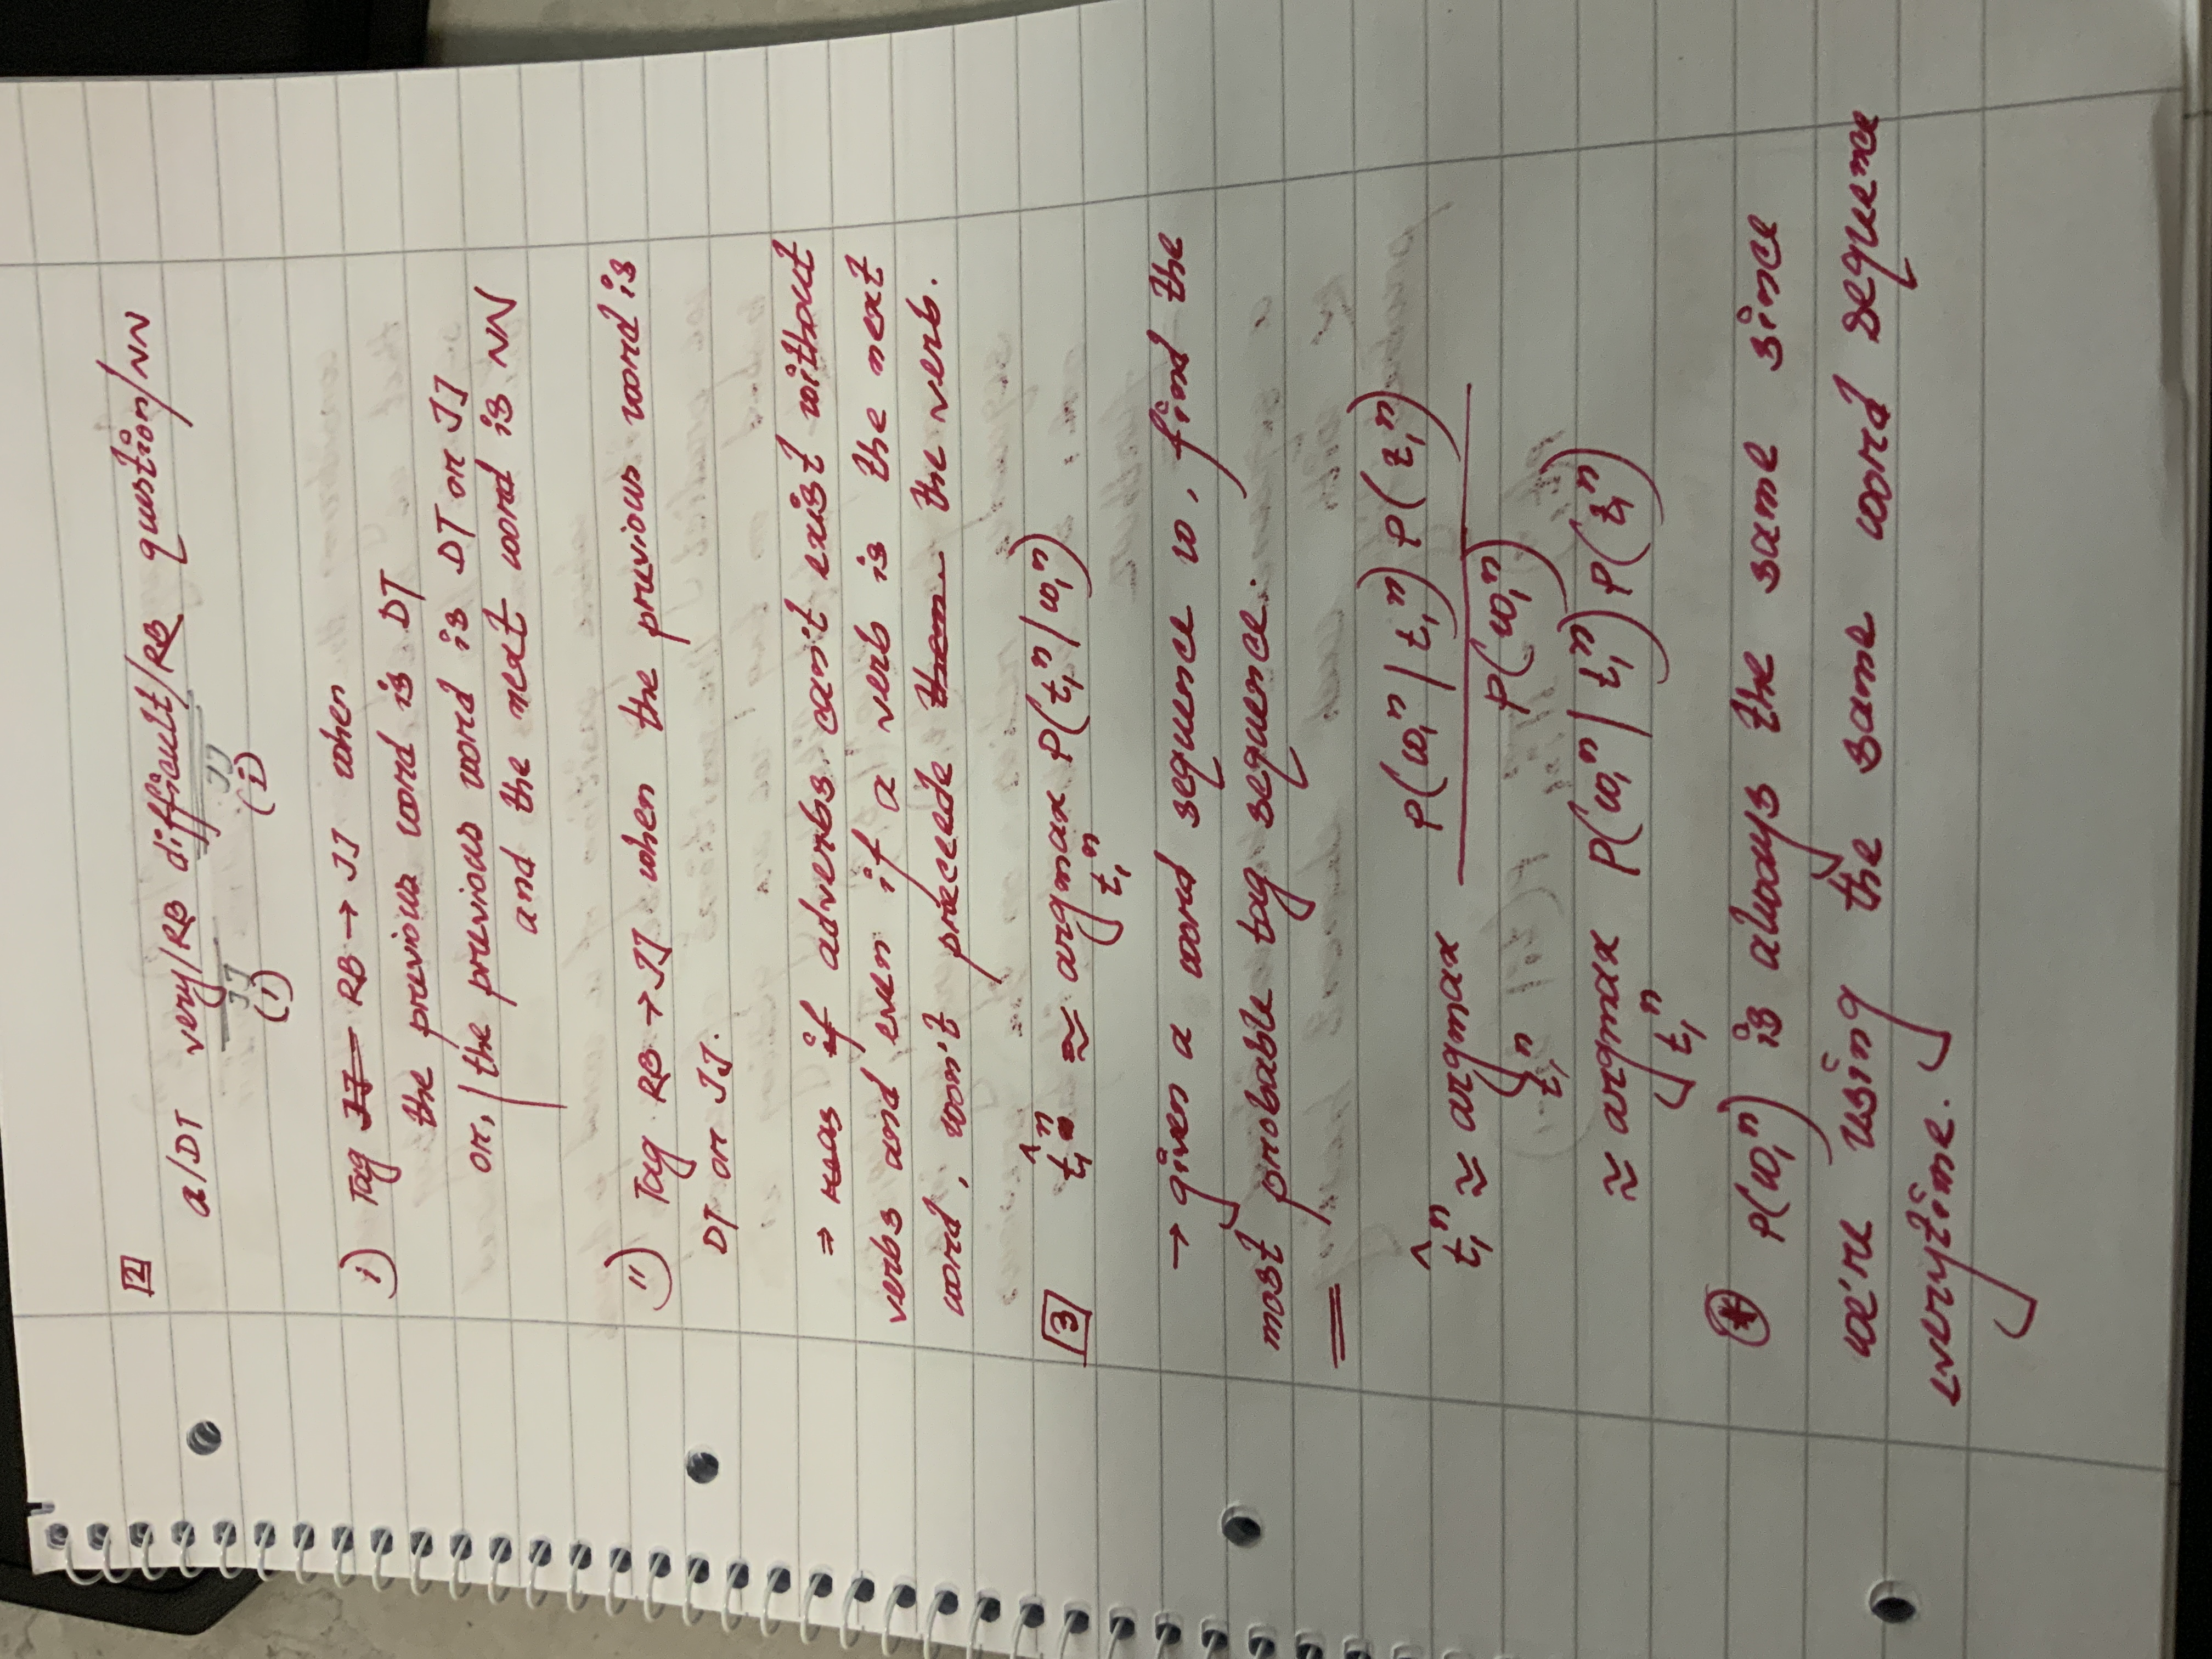 2
a/DT very/RB difficult/RB question/NN
JJ JJ
(i) (i)
i) Tag JJ RB → JJ when
the previous word is DT
or, the previous word is DT or JJ
and the next word is NN
ii) Tag RB → JJ when the previous word is
DT or JJ.
⇒ as if adverbs can't exist without
verbs and even if a verb is the next
word, won't preceede them the verb.
3 t̂₁ⁿ ≈ argmax P(t₁ⁿ | w₁ⁿ)
t₁ⁿ
→ given a word sequence w, find the
most probable tag sequence.
P(w₁ⁿ | t₁ⁿ) P(t₁ⁿ)
t̂₁ⁿ ≈ argmax
P(w₁ⁿ)
t₁ⁿ
≈ argmax P(w₁ⁿ | t₁ⁿ) P(t₁ⁿ)
t₁ⁿ
* P(w₁ⁿ) is always the same since
we're using the same word sequence
everytime.